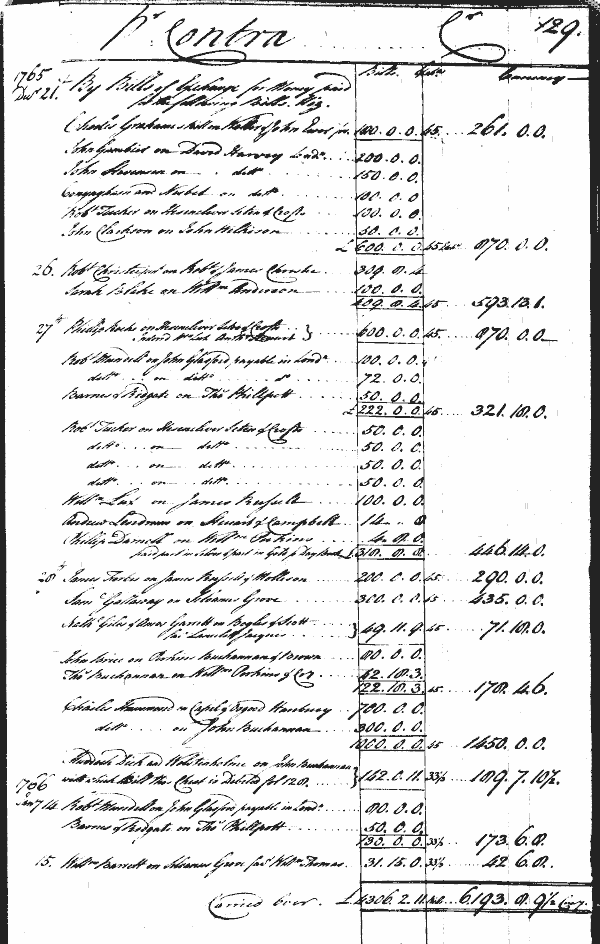 pr Contra Cr 129.
Bills Currency
1765
Decr 21. By Bills of Exchange for Money paid
for the following Bills. Viz.
Charles Grahame on of John 180.0.0. 45 261.0.0.
John Gambier on David Harvey Londo. 200.0.0.
John Stevenson on detto 150.0.0.
Conyngham and Nesbit on detto 100.0.0.
Robt Tucker on Hesenclever Seton & Crofts 100.0.0.
John Clackson on John Wilkinson 50.0.0.
£ 600.0.0. 45 870.0.0.
26. Robt Christie junr on Robt & James Christie 309.8.4
Sarah Blake on Willm Anderson 100.0.0.
409.8.4 45 593.13.1.
27th Phillip Rocke on Hesenclever Seton & Crofts
600.0.0. 45. 870.0.0
Robt Mundell on John Glasford, payable in Londo 100.0.0.
detto on detto 72.0.0.
Barnes & Ridgate on Thos Phillpott 50.0.0.
£ 222.0.0 45 321.18.0.
Robt Tucker on Hesenclever Seton & Crofts 50.0.0.
detto on detto 50.0.0.
detto on detto 50.0.0.
detto on detto 50.0.0.
Willm Lux on James Russell 100.0.0.
Andrew Landrum on Stewart & Campbell 14.. 8
Philip Darnell on Willm Perkins 4.8.0.
paid part in Silver & part in Gold £ 318.8.8 446.14.0.
28th James Forbes on James Russell & Mollison 200.0.0 45 290.0.0.
Saml Gallaway on Silvanus Grove 300.0.0 45 435.0.0.
Nathl Giles & Amos Garrett on Bogles & Scott
favr Lancelot Jacques 49.11.9. 45 71.18.0.
John Brice on Perkins Buchanan & Brown 80.0.0.
Thos Buchanan on Willm Perkins & Coy 42.18.3.
122.18.3. 45 178.4.6.
Charles Hammond on Capel & Osgood Hanbury 700.0.0.
detto on John Buchanan 300.0.0.
1000.0.0. 45 1450.0.0.
Murdoch Dick and Wolstenholme on John Buchanan
Chest is Debited fol 128. 142.0.11. 33⅓ 189.7.10½.
1766
Jany 14. Robt Mundell on John Glasford payable in Londo 80.0.0.
Barnes & Ridgate on Thos Phillpott 50.0.0.
130.0.0. 33⅓ 173.6.8.
15. Willm Barrett on Silvanus Grove favr Willm Thomas 31.15.0. 33⅓ 42.6.8.
Carried over £ 4306.2.11 6193.8.9½